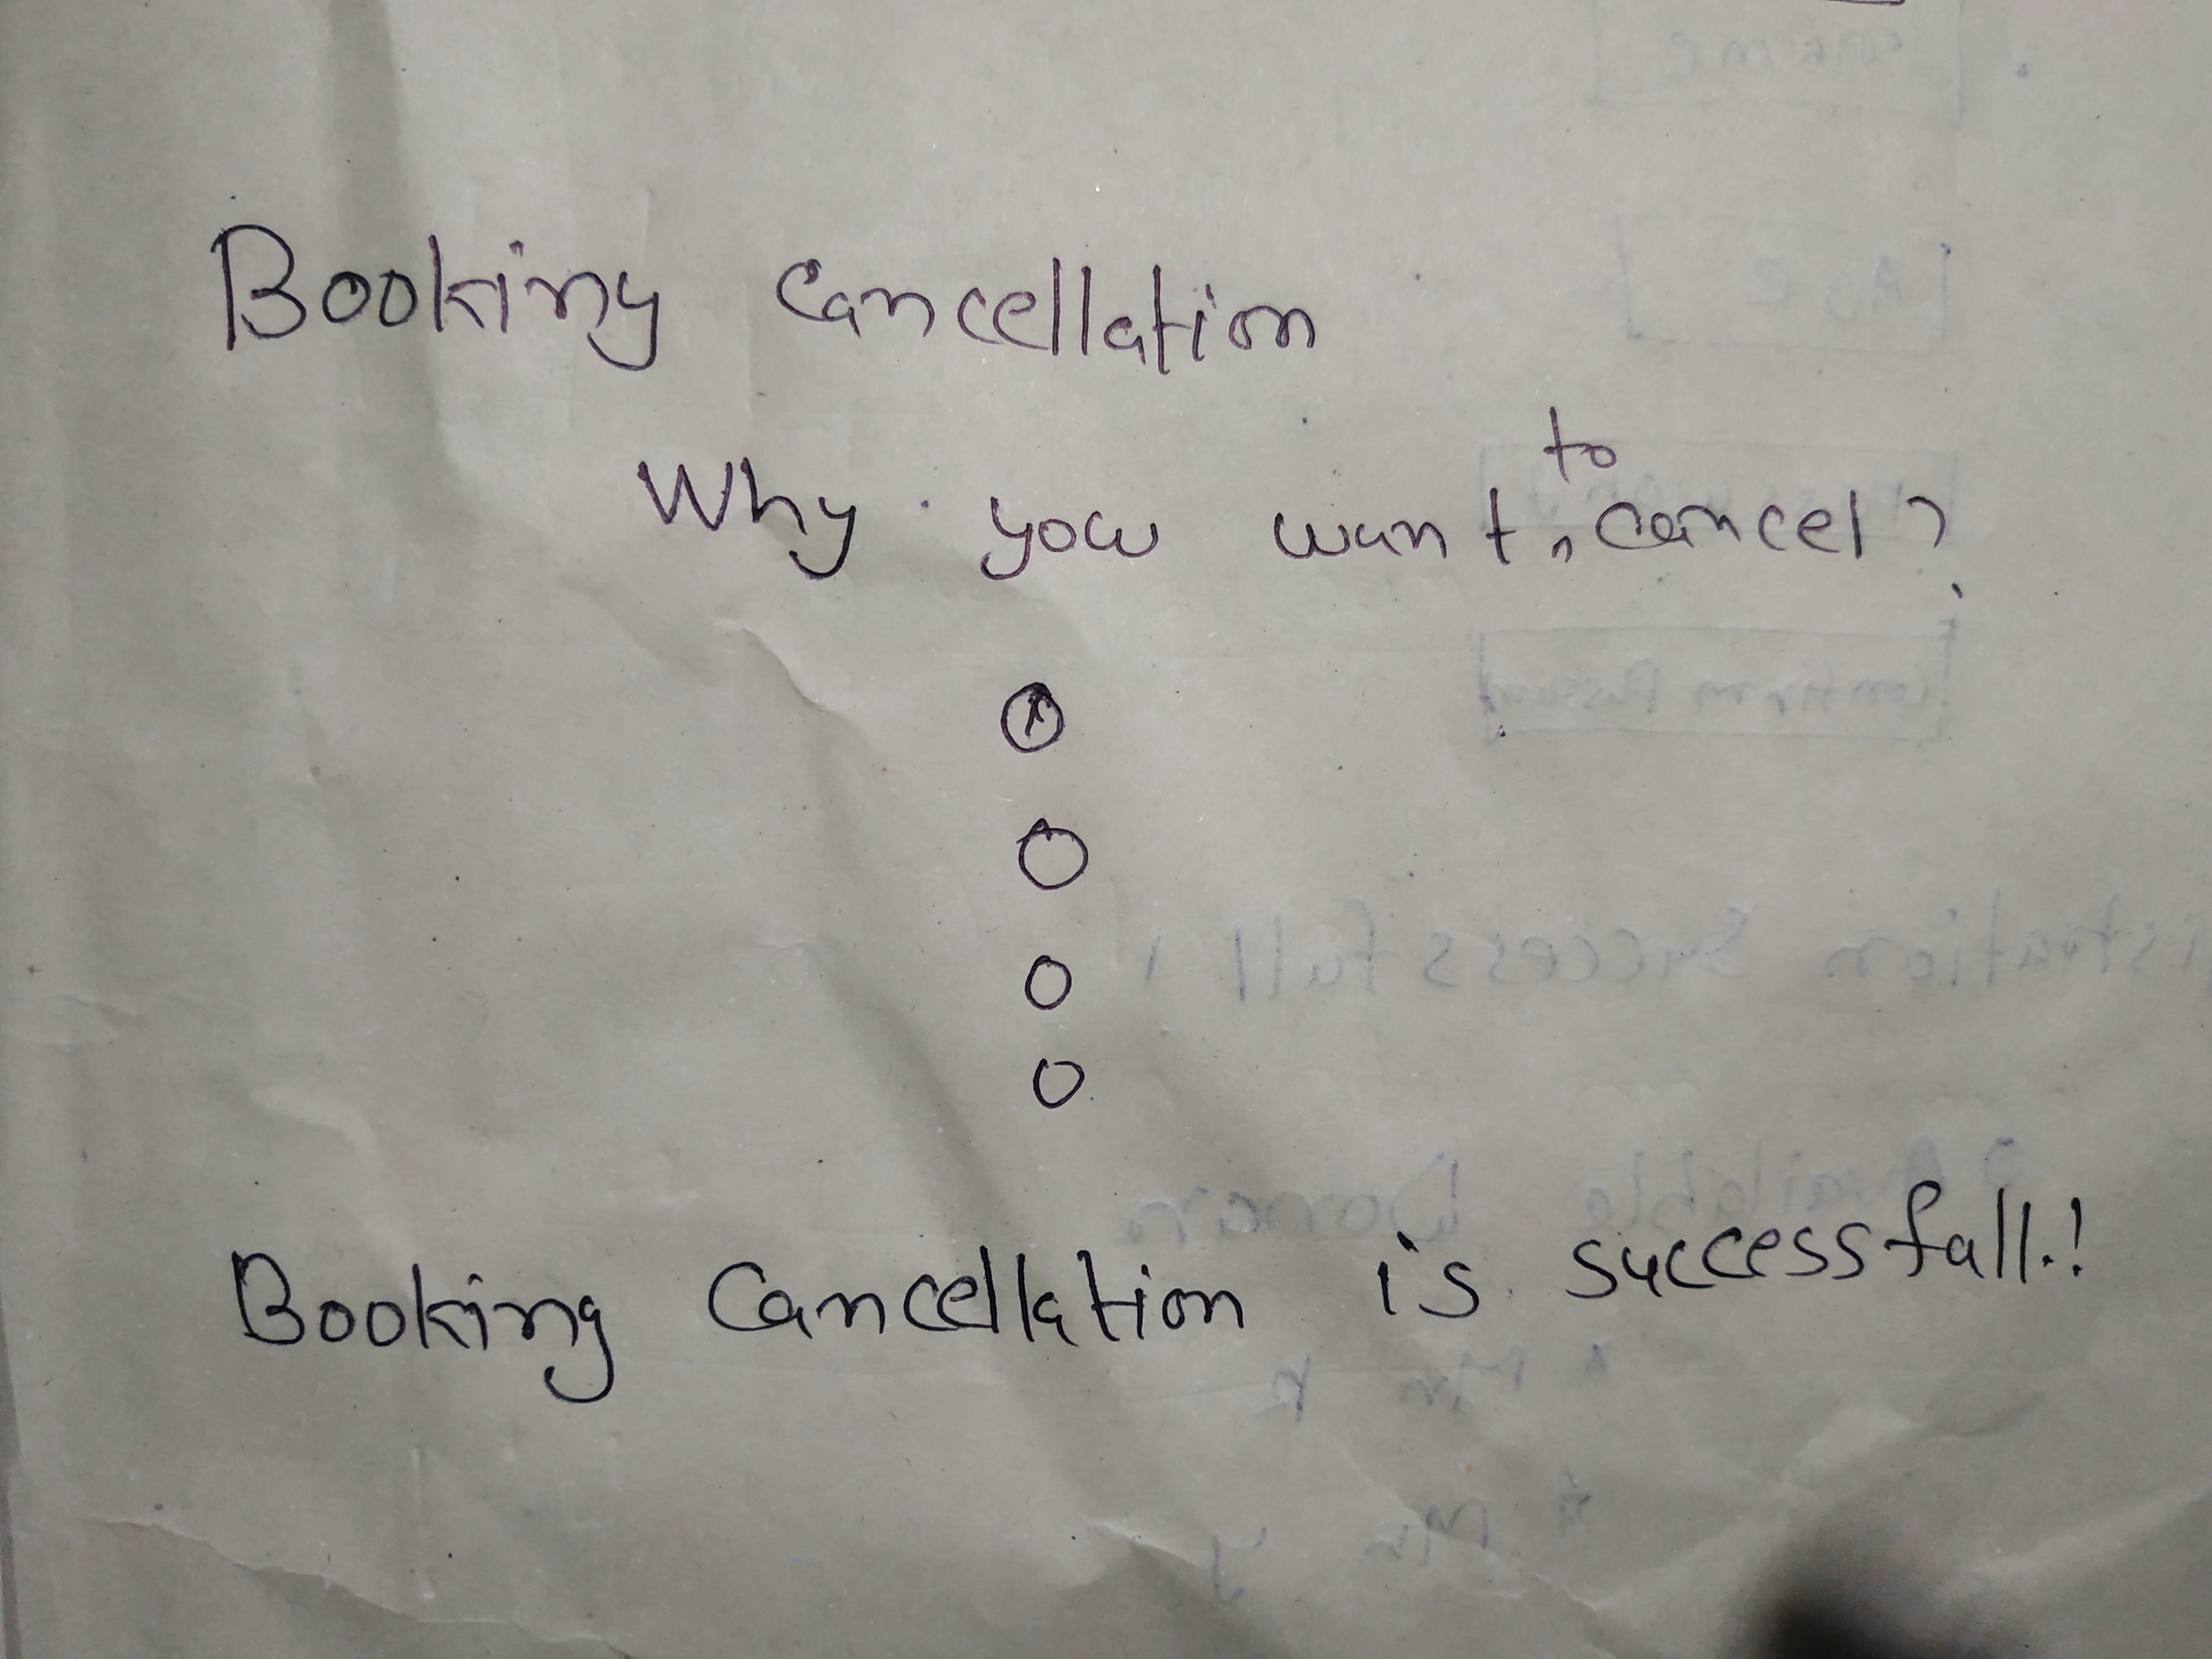 Booking Cancellation
Why you want, to cancel?
Booking Cancellation is successfall.!